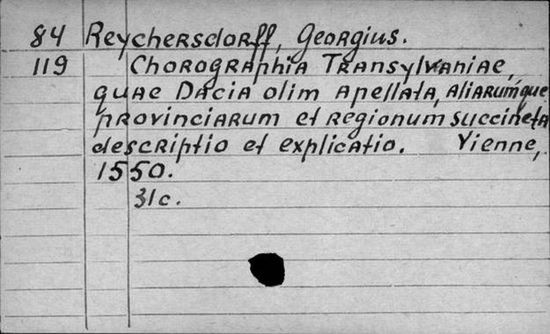 84 Reychersdorff, Georgius.
119 Chorographia Transylvaniae,
quae Dacia olim apellata, aliarumque
provinciarum et regionum succincta
descriptio et explicatio. Vienne,
1550.
31c.